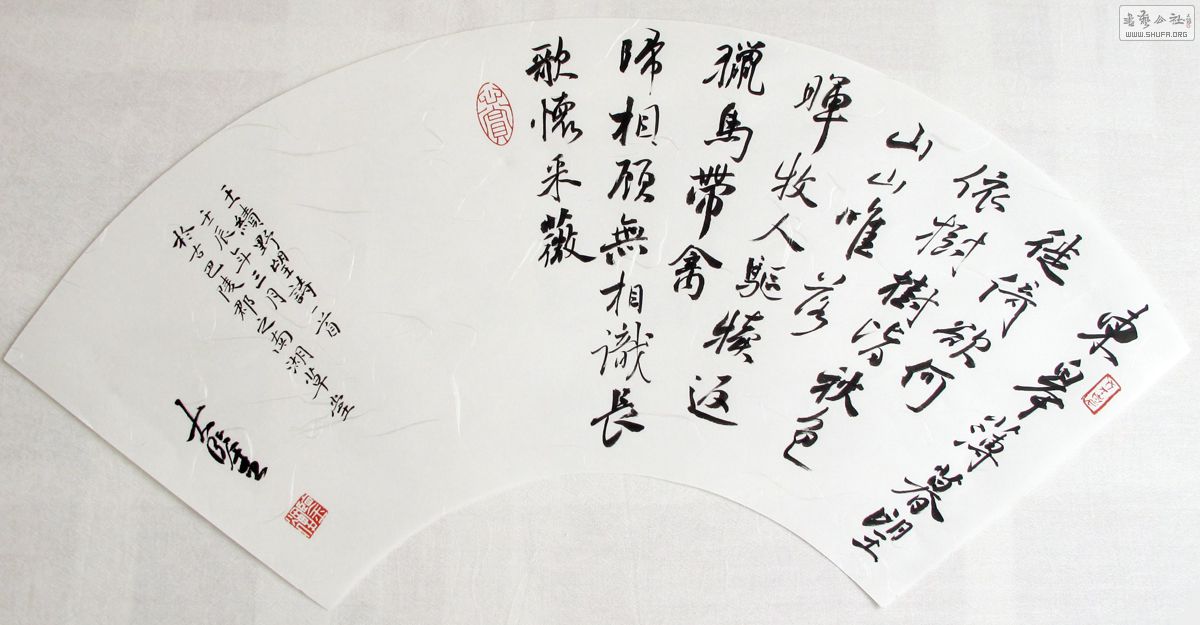 東皋薄暮望
徙倚欲何
依樹樹皆秋色
山山唯落
暉牧人驅犢返
獵馬帶禽
歸相顧無相識長
歌懷采薇
心賞
王績野望詩一首
壬辰年三月
於古巴陵郡之南湖草堂
WWW.SHUFA.ORG